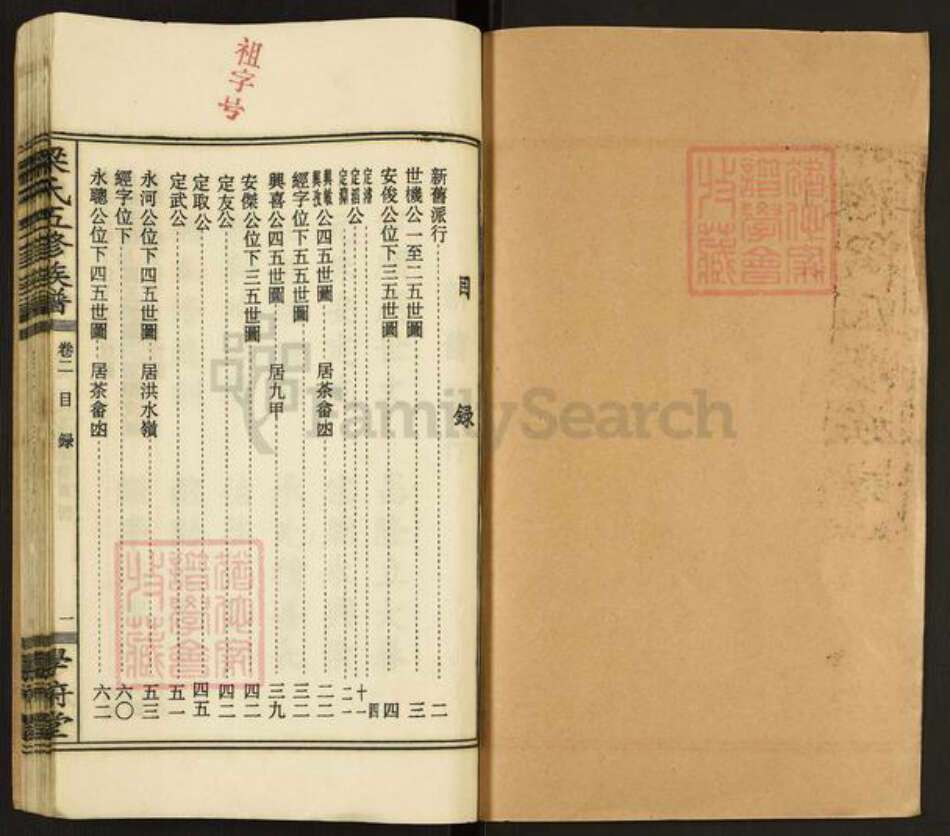 祖字号
目 錄
新舊派行 二
世機公一至二五世圖 三
安俊公位下三五世圖 四
定濬 四
定韜公 十一
定 二一
興岐公四五世圖 居茶畬凼 二二
興孜
經字位下五五世圖 三二
興喜公四五世圖 居九甲 三九
安傑公位下三五世圖 四二
定友公 四二
定取公 四五
定武公 五一
永河公位下四五世圖 居洪水嶺 五三
經字位下 六〇
永聰公位下四五世圖 居茶畬凼 六二
梁氏五修族譜
卷二 目錄
一
學府堂
FamilySearch